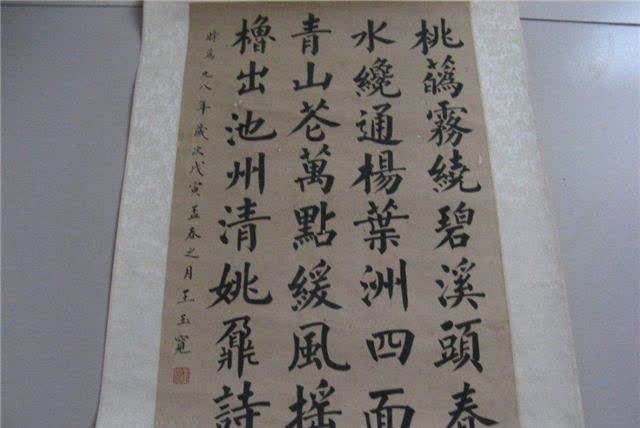 桃蘤霧繞碧溪頭春
水纔通楊葉洲四面
青山花萬點緩風摇
櫓出池州清姚鼐詩
時爲九八年歲次戊寅孟春之月王玉寬